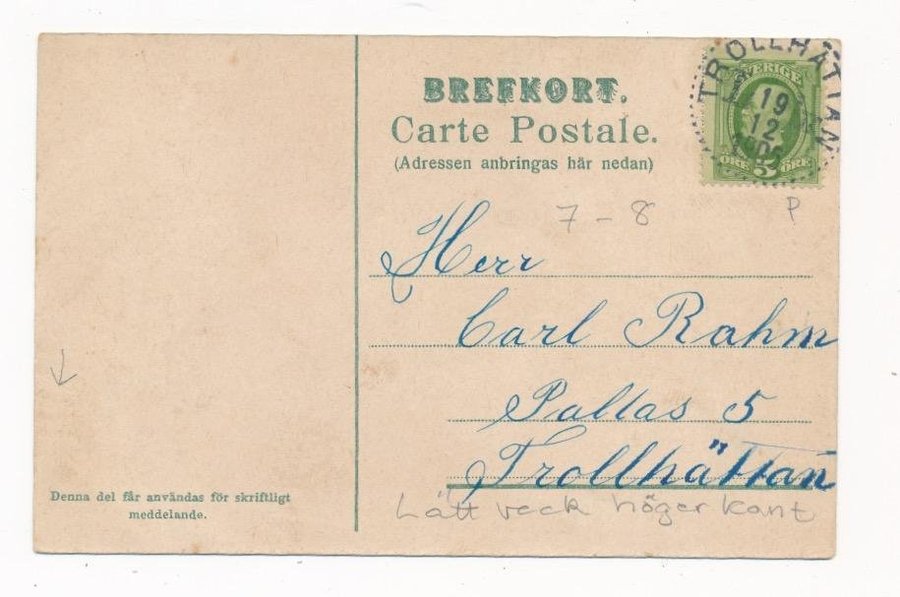 BREFKORT.
Carte Postale.
(Adressen anbringas här nedan)
TROLLHÄTTAN
19
12
SVERIGE
ÖRE 5 ÖRE
P
7 – 8
Herr
Carl Rahm
Pallas 5
Trollhättan
Lätt veck höger kant
Denna del får användas för skriftligt
meddelande.